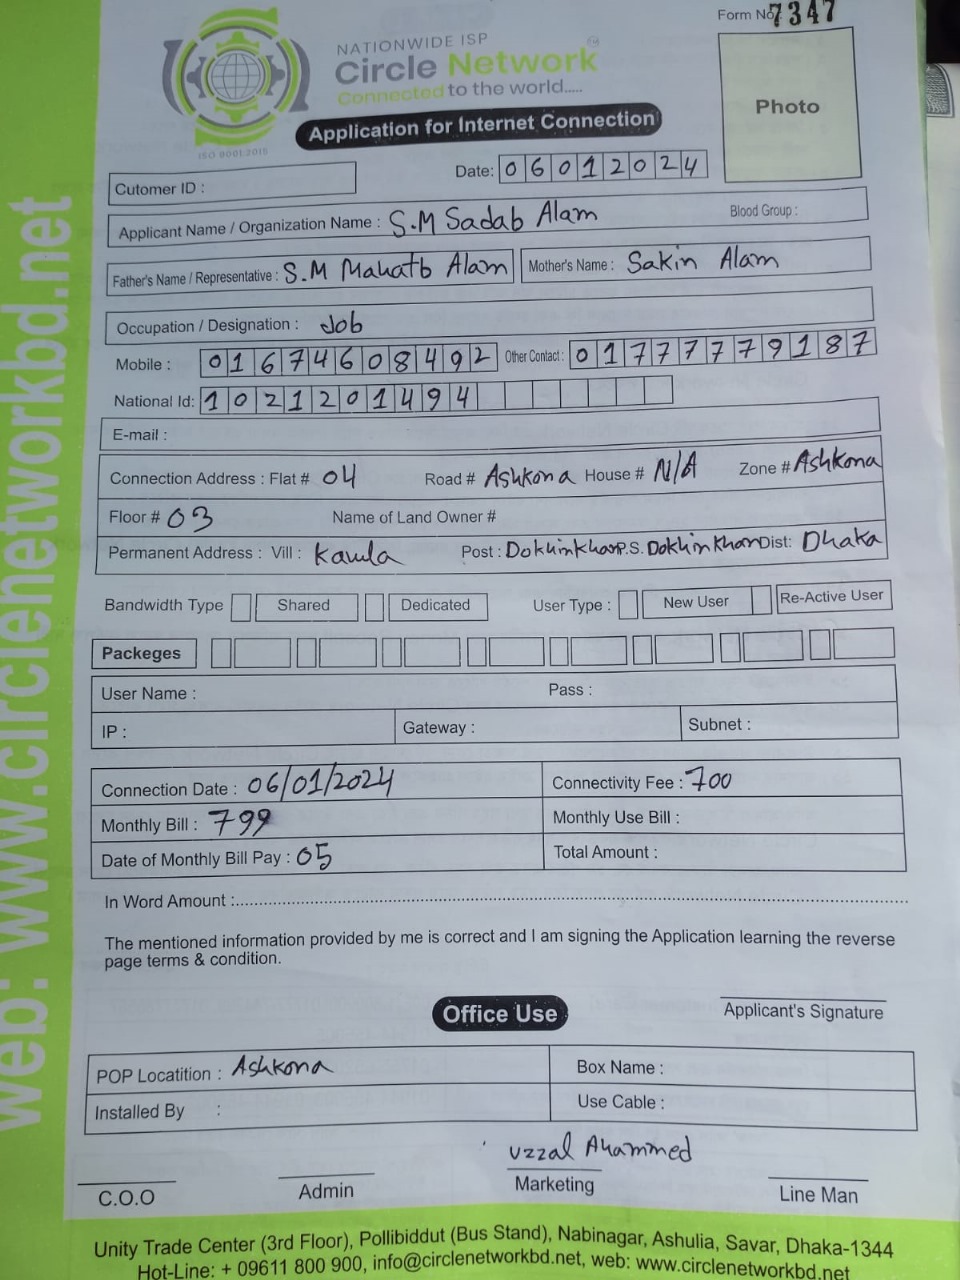 Form No 7347
NATIONWIDE ISP
Circle Network
Connected to the world.....
ISO 9001:2015
Application for Internet Connection
Photo
Cutomer ID :
Date: 06012024
Applicant Name / Organization Name : S.M Sadab Alam Blood Group :
Father's Name / Representative : S.M Mahatb Alam Mother's Name : Sakin Alam
Occupation / Designation : Job
Mobile : 01674608492 Other Contact : 01777779187
National Id: 1021201494
E-mail :
Connection Address : Flat # 04 Road # Ashkona House # N/A Zone # Ashkona
Floor # 03 Name of Land Owner #
Permanent Address : Vill : Kawla Post : Dokhinkhan P.S. Dokhinkhan Dist: Dhaka
Bandwidth Type Shared Dedicated User Type : New User Re-Active User
Packeges
User Name : Pass :
IP : Gateway : Subnet :
Connection Date : 06/01/2024 Connectivity Fee : 700
Monthly Bill : 799 Monthly Use Bill :
Date of Monthly Bill Pay : 05 Total Amount :
In Word Amount :
The mentioned information provided by me is correct and I am signing the Application learning the reverse
page terms & condition.
Office Use
Applicant's Signature
POP Locatition : Ashkona Box Name :
Installed By : Use Cable :
Uzzal Ahammed
C.O.O Admin Marketing Line Man
Unity Trade Center (3rd Floor), Pollibiddut (Bus Stand), Nabinagar, Ashulia, Savar, Dhaka-1344
Hot-Line: + 09611 800 900, info@circlenetworkbd.net, web: www.circlenetworkbd.net
web: www.circlenetworkbd.net